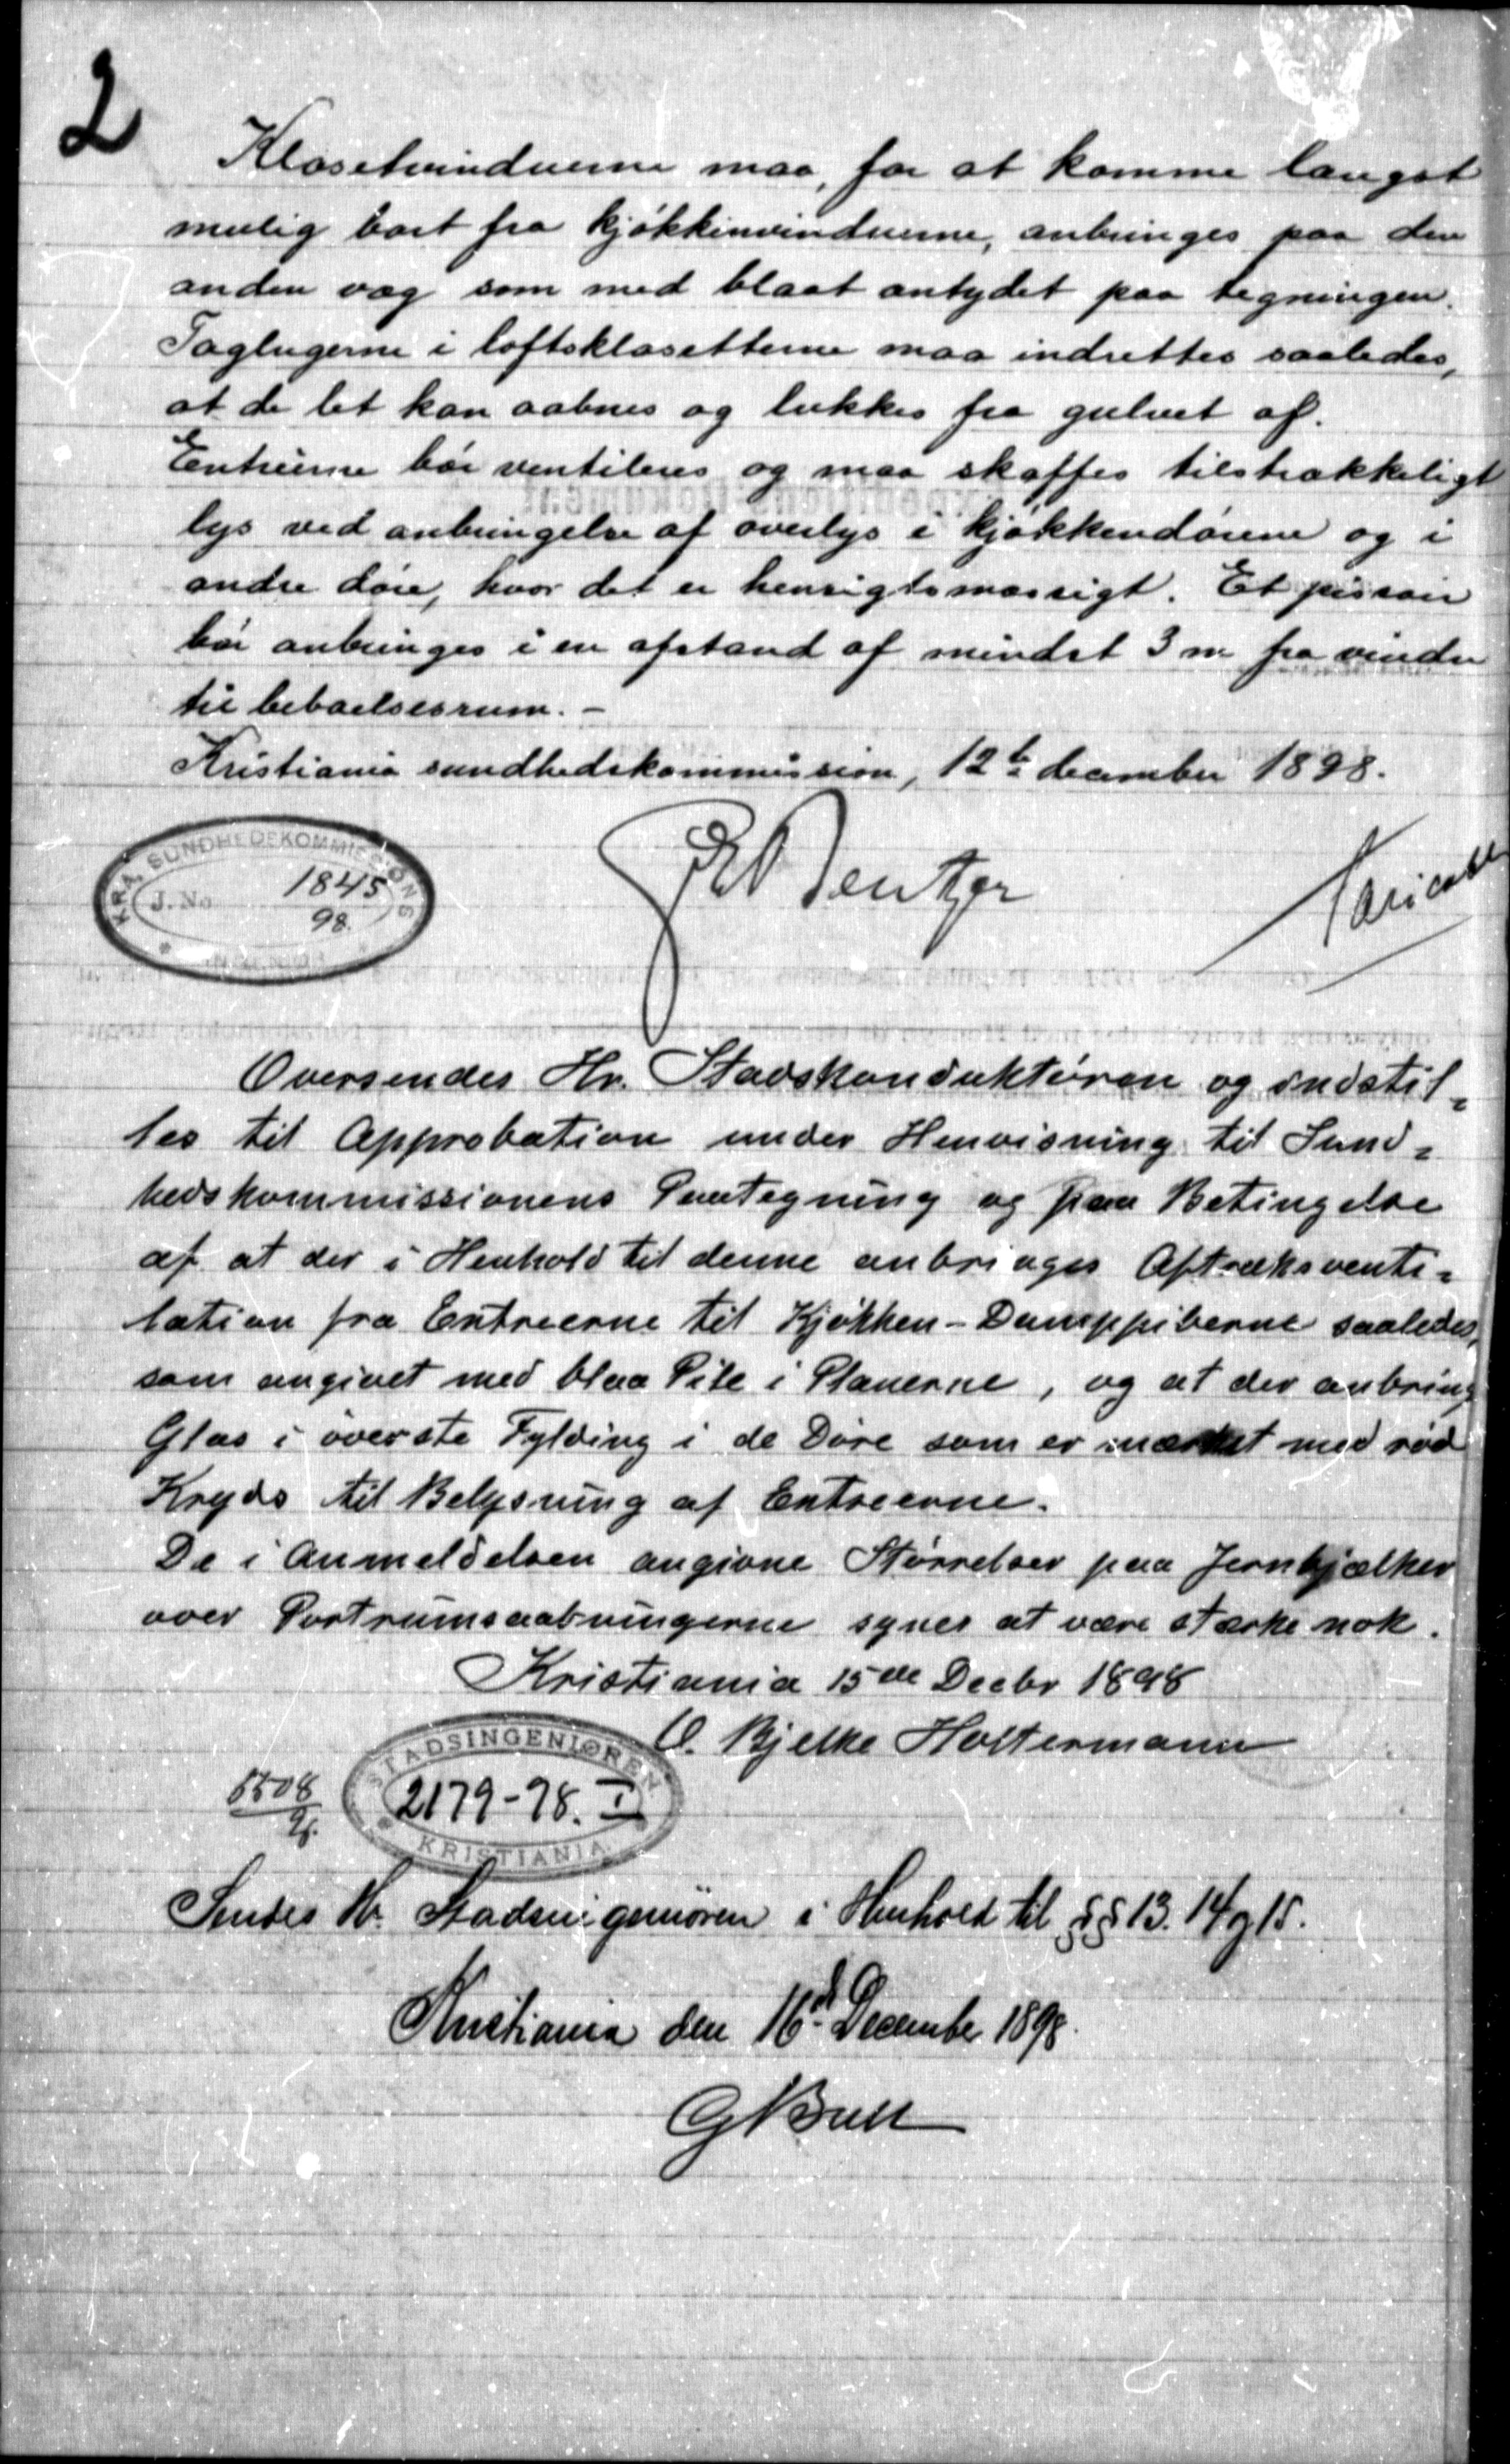 2
Klosetvinduerne maa, for at komme længst
mulig bort fra kjøkkenvinduerne, anbringes paa den
anden væg som med blaat antydet paa tegningen.
Taglugerne i loftsklosetterne maa indrettes saaledes,
at de let kan aabnes og lukkes fra gulvet af.
Entréerne bør ventileres og maa skaffes tilstrækkeligt
lys ved anbringelse af overlys i kjøkkendørene og i
andre døre, hvor det er hensigtsmæssigt. Et pissoir
bør anbringes i en afstand af mindst 3 m fra vindu
til beboelsesrum. –
Kristiania sundhedskommission, 12te december 1898.
KRA. SUNDHEDSKOMMISSIONS
J. No 1845
98.
Oversendes Hr. Stadskonduktøren og indstil=
les til Approbation under Henvisning til Sund=
hedskommissionens Paategning og paa Betingelse
af at der i Henhold til denne anbringes Aftræksventi=
lation fra Entreerne til Kjøkken-Damppiberne saaledes,
som angivet med blaa Pile i Planerne, og at der anbring
Glas i øverste Fylding i de Døre som er mærket med rød
Kryds til Belysning af Entreerne.
De i Anmeldelsen angivne Størrelser paa Jernbjælker
over Portrumsaabningerne synes at være stærke nok.
Kristiania 15de Decbr 1898
O. Bjelke Holtermann
STADSINGENIØREN
2179-98. I
KRISTIANIA
Sendes Hr. Stadsingeniøren i Henhold til §§ 13. 14 og 15.
Kristiania den 16d December 1898.
G Bull